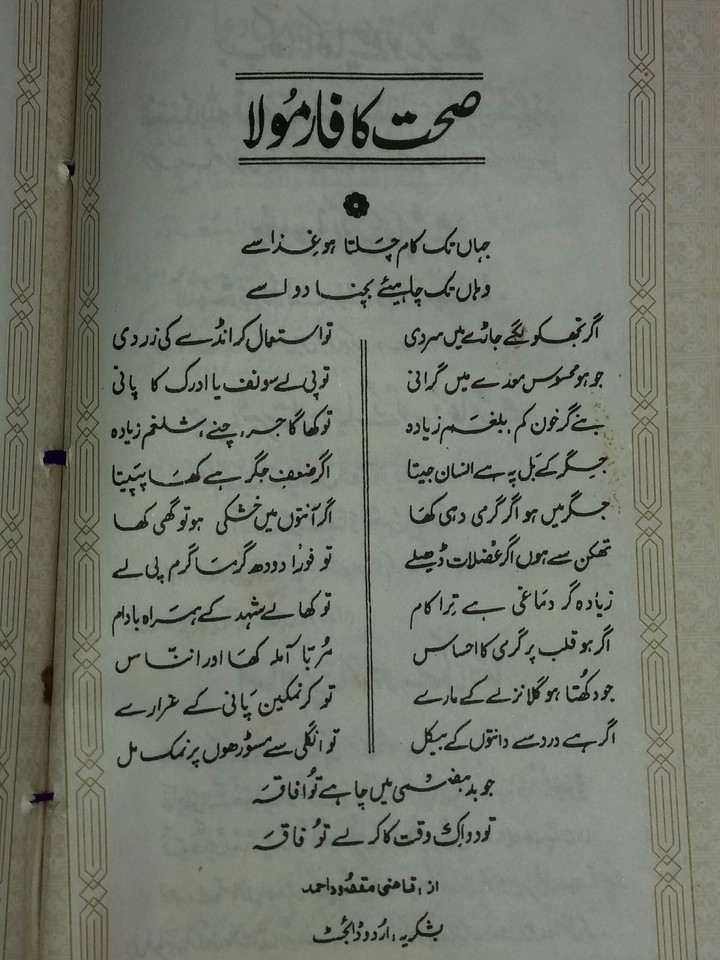 صحت کا فارمُولا
جہاں تک کام چَلتا ہو غِذا سے
وہاں تک چاہیئے بچنا دوا سے
اگر تجھ کو لگے جاڑے میں سردی تو استعمال کر انڈے کی زردی
جو ہو محسوس معدے میں گرانی تو پی لے سونف یا ادرک کا پانی
بنے گر خون کم بلغم زیادہ تو کھا گاجر، چنے، شلغم زیادہ
جِگر کے بَل پہ ہے انسان جیتا اگر ضعفِ جگر ہے کھا پَپیتا
جگر میں ہو اگر گرمی دہی کھا اگر آنتوں میں خشکی ہو تو گھی کھا
تھکن سے ہوں اگر عُضلات ڈھیلے تو فورًا دودھ گرما گرم پی لے
زیادہ گر دماغی ہے تِرا کام تو کھا لے شہد کے ہمراہ بادام
اگر ہو قلب پر گرمی کا احساس مُربّا آملہ کھا اور انناس
جو دکھتا ہو گلا نزلے کے مارے تو کر نمکین پانی کے غرارے
اگر ہے درد سے دانتوں کے بیکل تو انگلی سے مسوڑھوں پر نمک مل
جو بدہضمی میں چاہے تُو افاقہ
تو دو اِک وقت کا کر لے تُو فاقہ
از، قاضی مقصُود احمد
بشکریہ، اردو ڈائجسٹ